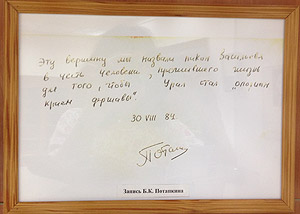 Эту вершину мы назвали пиком Васильева
в честь человека, прожившего жизнь
для того, чтобы Урал стал "опорным
краем державы".
30 VIII 84
Потап
Запись Б.К. Потапкина